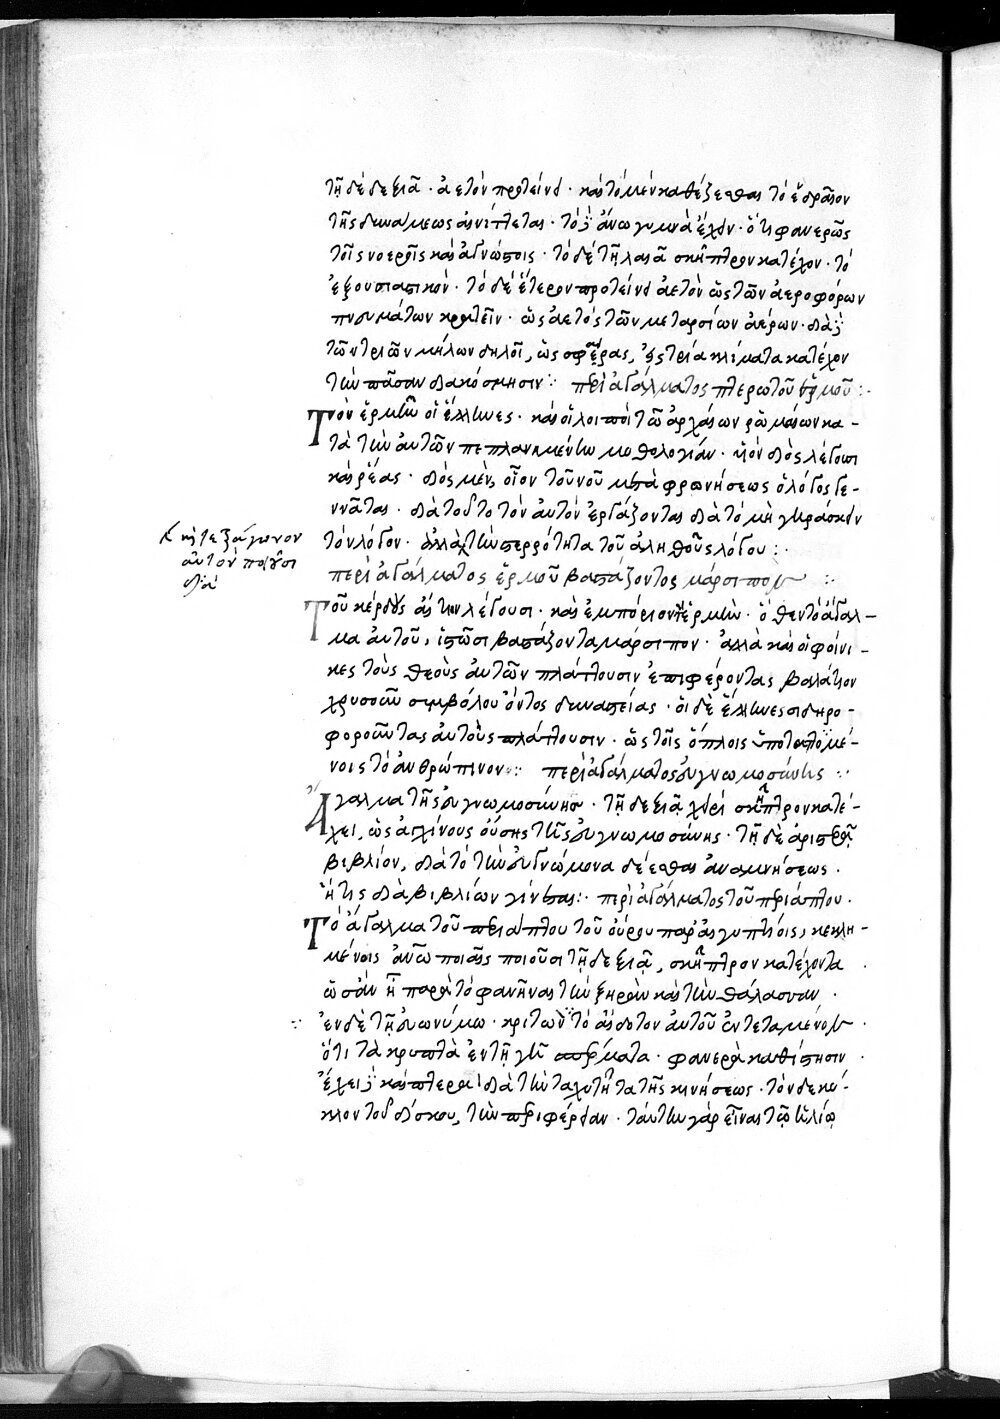 τῇ δὲ δεξιᾷ · ἀετὸν προτείνει · καὶ τὸ μὲν καθέζεσθαι τὸ ἑδραῖον
τῆς δυνάμεως αἰνίττεται · τὸ δὲ ἄνω γυμνὰ ἔχειν · ὅτι φανερὸς
τοῖς νοεροῖς καὶ
τὸ δὲ τῇ λαιᾷ σκῆπτρον κατέχον · τὸ
ἐξουσιαστικόν · τὸ δὲ ἕτερον προτείνει ἀετὸν ὡς τῶν ἀεροφόρων
πνευμάτων κρατεῖν · ὡς ἀετὸς τῶν μεταρσίων ἀέρων · διὰ δὲ
τῶν τριῶν μήλων δηλοῖ, ὡς σφαίρας, εἰς τρία κλίματα κατέχον
τὴν πᾶσαν διακόσμησιν : περὶ ἀγάλματος πτερωτοῦ ἑρμοῦ :·
Τὸν ἑρμῆν οἱ ἕλληνες · καὶ οἱ λοιποὶ τῶν ἀρχαίων ῥωμαίων κα-
τὰ τὴν αὐτῶν πεπλανημένην μυθολογίαν · υἱὸν διὸς λέγουσι
καὶ ῥέας · διὸς μὲν, οἷον τοῦ νοῦ μετὰ φρονήσεως ὁ λόγος γε-
ννᾶται · διὰ τοῦτο τὸν αὐτὸν ἐργάζονται διὰ τὸ μὴ γηράσκειν
τὸν λόγον · ἀλλὰ
τοῦ ἀληθοῦς λόγου :·
καὶ τετράγωνον
αὐτὸν ποιοῦσι
διὰ
περὶ ἀγάλματος ἑρμοῦ βαστάζοντος μάρσιπον :·
Τοῦ κέρδους αἴτιον λέγουσι · καὶ ἐμπορίου τὸν ἑρμῆν · ὅθεν τὸ ἄγαλ-
μα αὐτοῦ, ἱστῶσι βαστάζοντα μάρσιπον · ἀλλὰ καὶ οἱ φοίνι-
κες τοὺς θεοὺς αὐτῶν πλάττουσιν ἐπιφέροντας βαλάντιον
χρυσοῦν συμβόλου ὄντος δυναστείας · οἱ δὲ ἕλληνες σιδηρο-
φοροῦντας αὐτοὺς πλάττουσιν · ὡς τοῖς ὅπλοις ὑποταττομέ-
νοις τὸ ἀνθρώπινον :· περὶ ἀγάλματος εὐγνωμοσύνης :·
Ἄγαλμα τῆς εὐγνωμοσύνης · τῇ δεξιᾷ χειρὶ σκῆπτρον κατέ-
χει, ὡς ἀγχίνους οὔσης τῆς εὐγνωμοσύνης · τῇ δὲ ἀριστερᾷ
βιβλίον, διὰ τὸ τὴν εὐγνώμονα δέεσθαι ἀναμνήσεως ·
ἥτις διὰ βιβλίων γίνεται :· περὶ ἀγάλματος τοῦ πριάπου ·
Τὸ ἄγαλμα τοῦ πριάπου τοῦ ὥρου παρ' αἰγυπτίοις κεκλη-
μένοις ἀνθρωποειδὲς ποιοῦσι τῇ δεξιᾷ, σκῆπτρον κατέχοντα
ὡσὰν ᾖ παρὰ τὸ φανῆναι τὴν ξηρὰν καὶ τὴν θάλασσαν ·
ἐν δὲ τῇ εὐωνύμῳ · κρατῶν τὸ αἰδοῖον αὐτοῦ ἐντεταμένον ·
ὅτι τὰ κρυπτὰ ἐν τῇ γῇ σπέρματα · φανερὰ καθίστησιν ·
ἔχει δὲ καὶ πτερὰ διὰ τὴν ταχυτῆτα τῆς κινήσεως · τὸν δὲ κύ-
κλον τοῦ δίσκου, τὴν περιφέρειαν · ταύτην γὰρ εἶναι τῷ ἡλίῳ